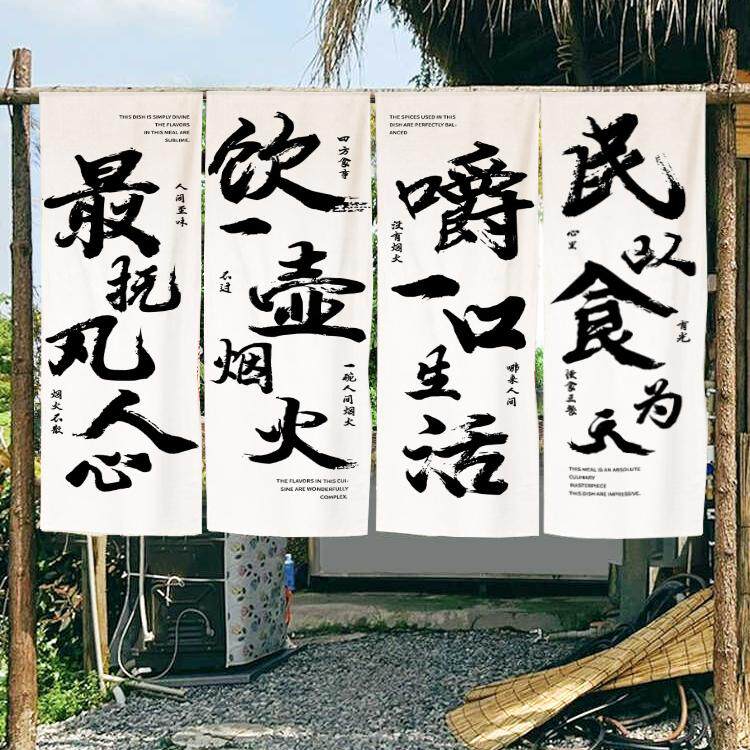 THIS DISH IS SIMPLY DIVINE
THE FLAVORS
IN THIS MEAL ARE
SUBLIME.
最抚凡人心
人间至味
烟火不散
饮一壶烟火
四方食事
不过
一碗人间烟火
THE FLAVORS IN THIS CUI-
SINE ARE WONDERFULLY
COMPLEX.
THE SPICES USED IN THIS
DISH ARE PERFECTLY BAL-
ANCED
嚼一口生活
没有烟火
哪来人间
民以食为天
心里
有光
THIS MEAL IS AN ABSOLUTE
CULINARY
MASTERPIECE
THIS DISH ARE IMPRESSIVE.